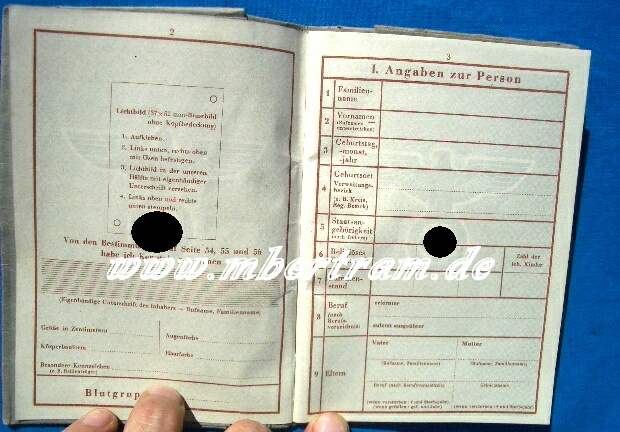 2
Lichtbild (37×52 mm-Brustbild
ohne Kopfbedeckung)
1. Aufkleben.
2. Links unten, rechts oben
mit Ösen befestigen.
3. Lichtbild in der unteren
Hälfte mit eigenhändiger
Unterschrift versehen.
4. Links oben und rechts
unten stempeln.
Von den Bestimm Seite 54, 55 und 56
habe ich
(Eigenhändige Unterschrift des Inhabers — Rufname, Familienname)
Größe in Zentimetern
Augenfarbe
Körperbauform
Haarfarbe
Besondere Kennzeichen
(z. B. Brillenträger)
Blutgrup
3
I. Angaben zur Person
1 Familien-
name
2 Vornamen
(Rufnamen
unterstreichen)
3 Geburtstag,
-monat,
-jahr
4 Geburtsort
Verwaltungs-
bezirk
(z. B. Kreis,
Reg. Bezirk)
5 Staats-
angehörigkeit
(auch frühere)
6
Zahl der
leb. Kinder
7
stand
8 Beruf
(nach
Berufs-
verzeichnis)
erlernter
zuletzt ausgeübter
9 Eltern
Vater
Mutter
(Rufname, Familienname)
(Rufname, Familienname)
Beruf (nach Berufsverzeichnis)
Geburtsname
(wenn verstorben: † und Sterbejahr)
(wenn gefallen: gef. und Jahr)
(wenn verstorben: † und Sterbejahr)
www.mbertram.de
www.mbertram.de